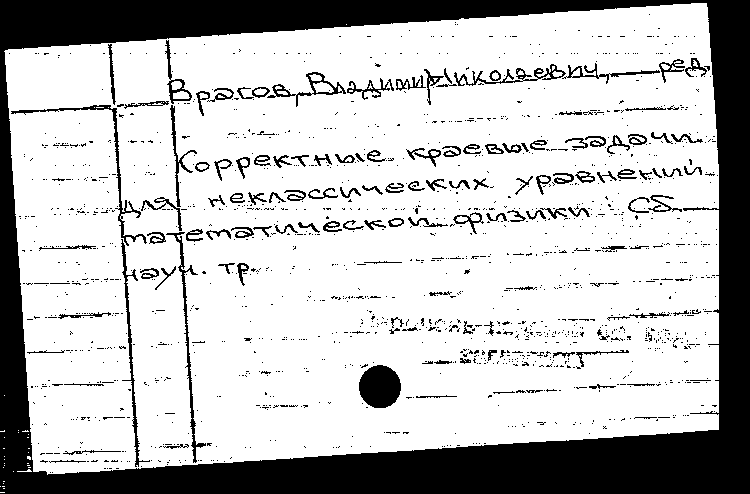 Врагов, Владимир Николаевич, ред.
Корректные краевые задачи
для неклассических уравнений
математической физики : Сб.
науч. тр.